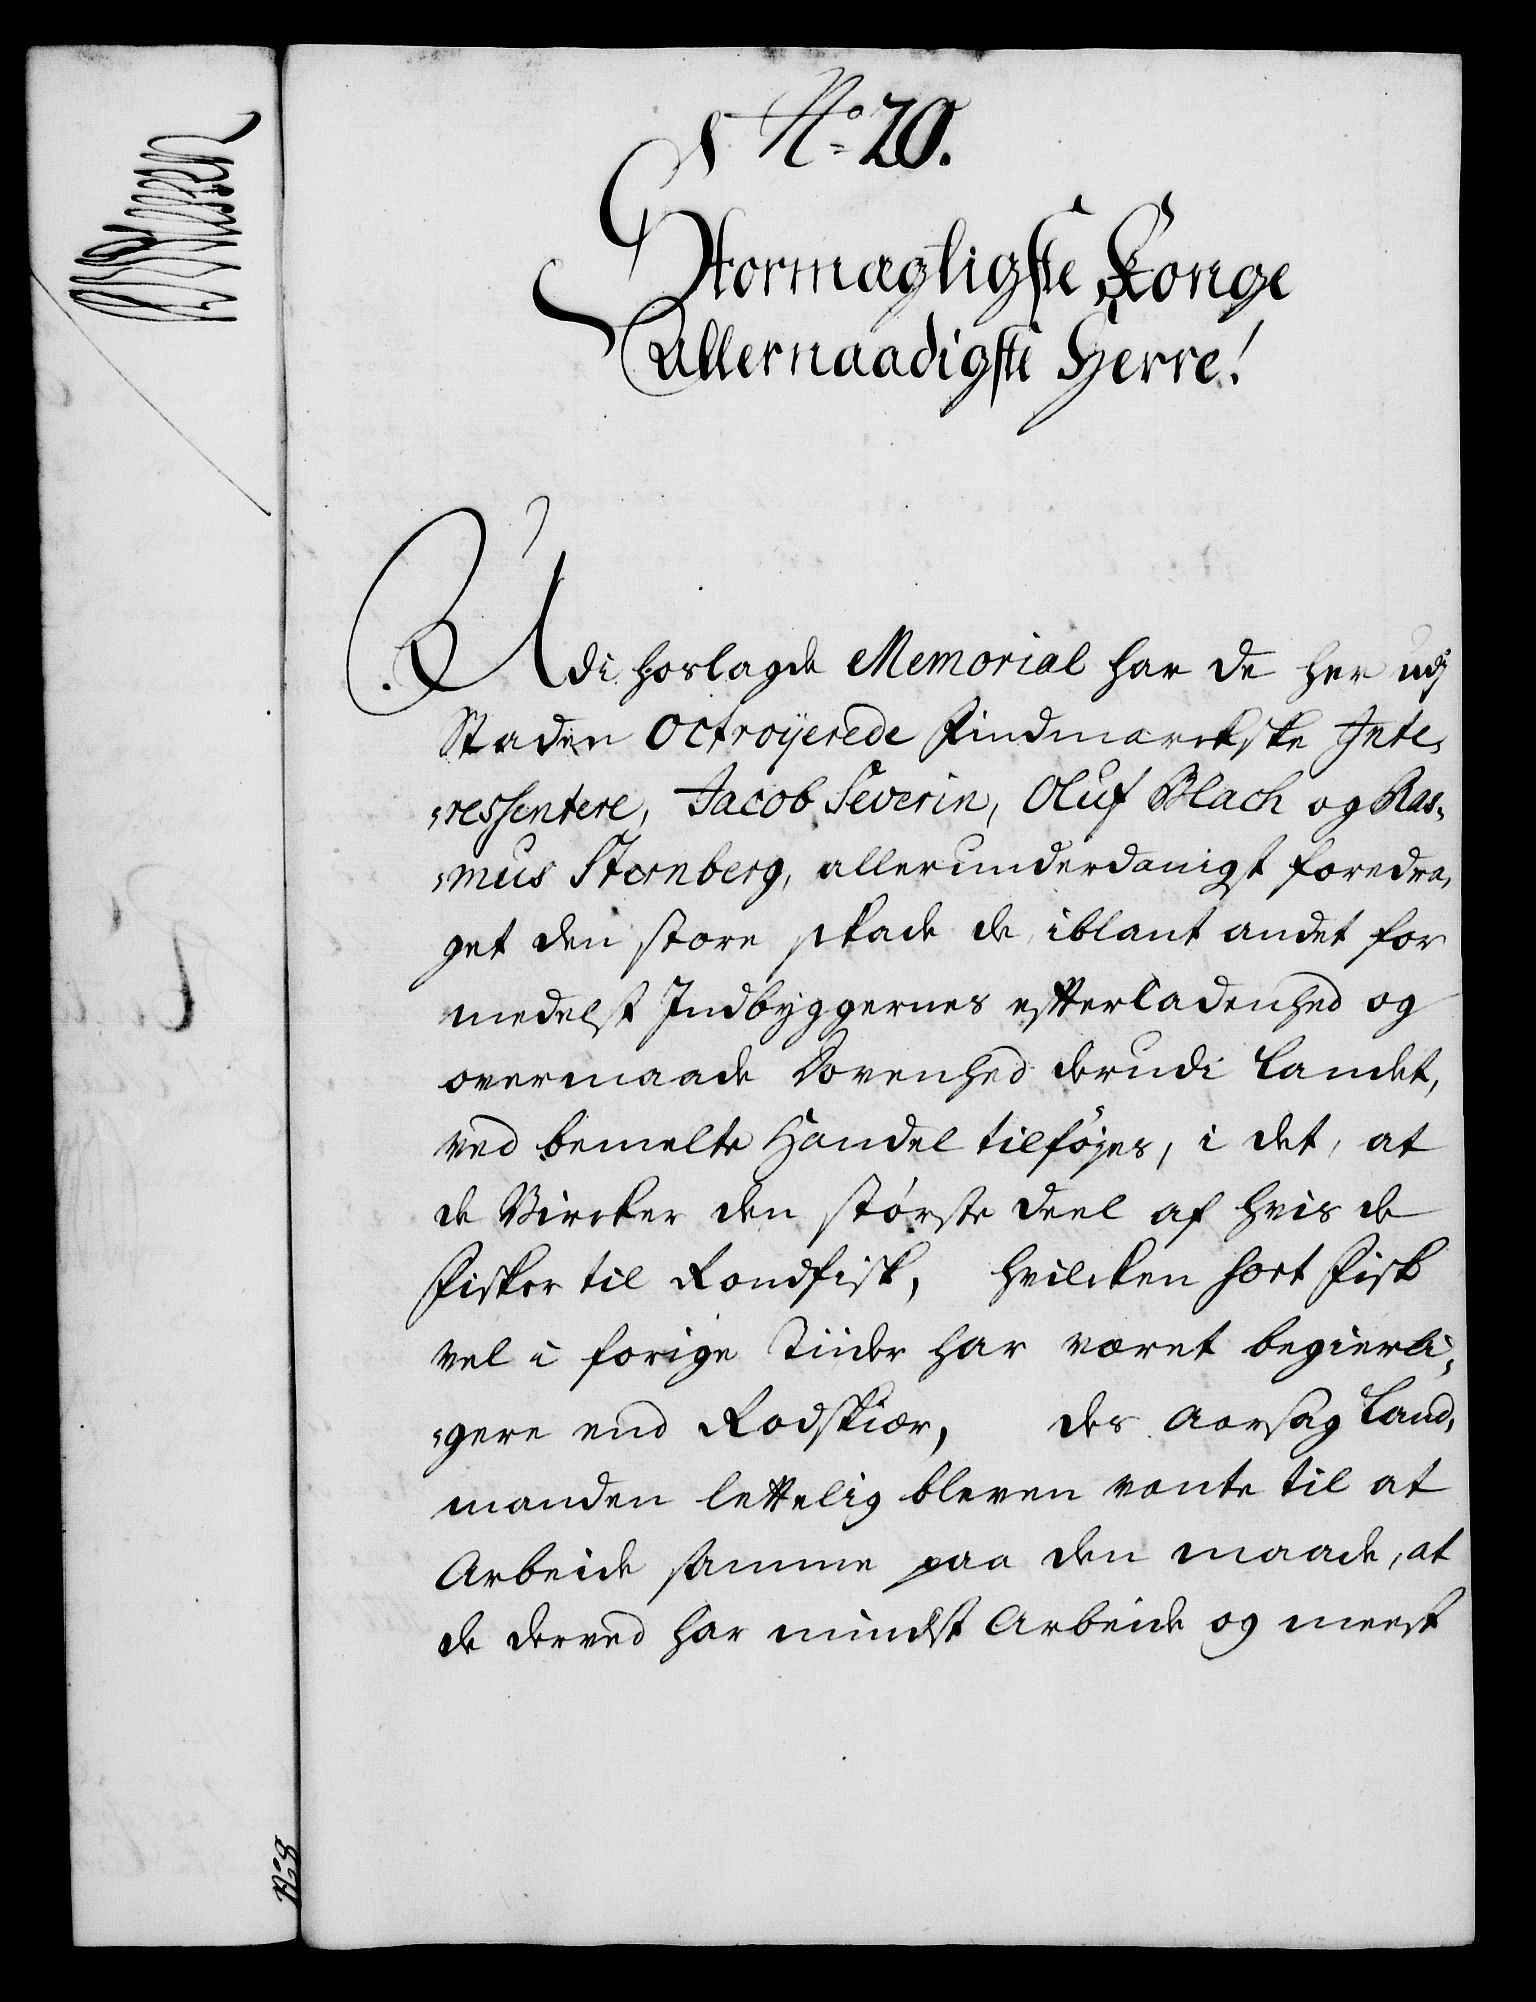 No: 20.
Stormægtigste Konge
Allernaadigste Herre!
Udi hoslagde Memorial har de her udj
Staden Octroyerede Findmarckske Inte-
-ressentere, Jacob Severin, Oluf Blach og Ras-
-mus Sternberg, allerunderdanigst foredra-
get den store skade de, iblant andet for
medelst Indbyggernes efterladenhed og
overmaade Dovenhed derudi Landet,
ved bemelte Handel tilføjes, i det, at
de Vircker den største deel af hvis de
Fisker til Rondfisk, hvilcken sort Fisk
vel i forige Tiider har været begierli-
-gere end Rodskiær, des Aarsag Land-
manden lettelig bleven vante til at
Arbeide samme paa den maade, at
de derved har mindst Arbeide og meest
No 8